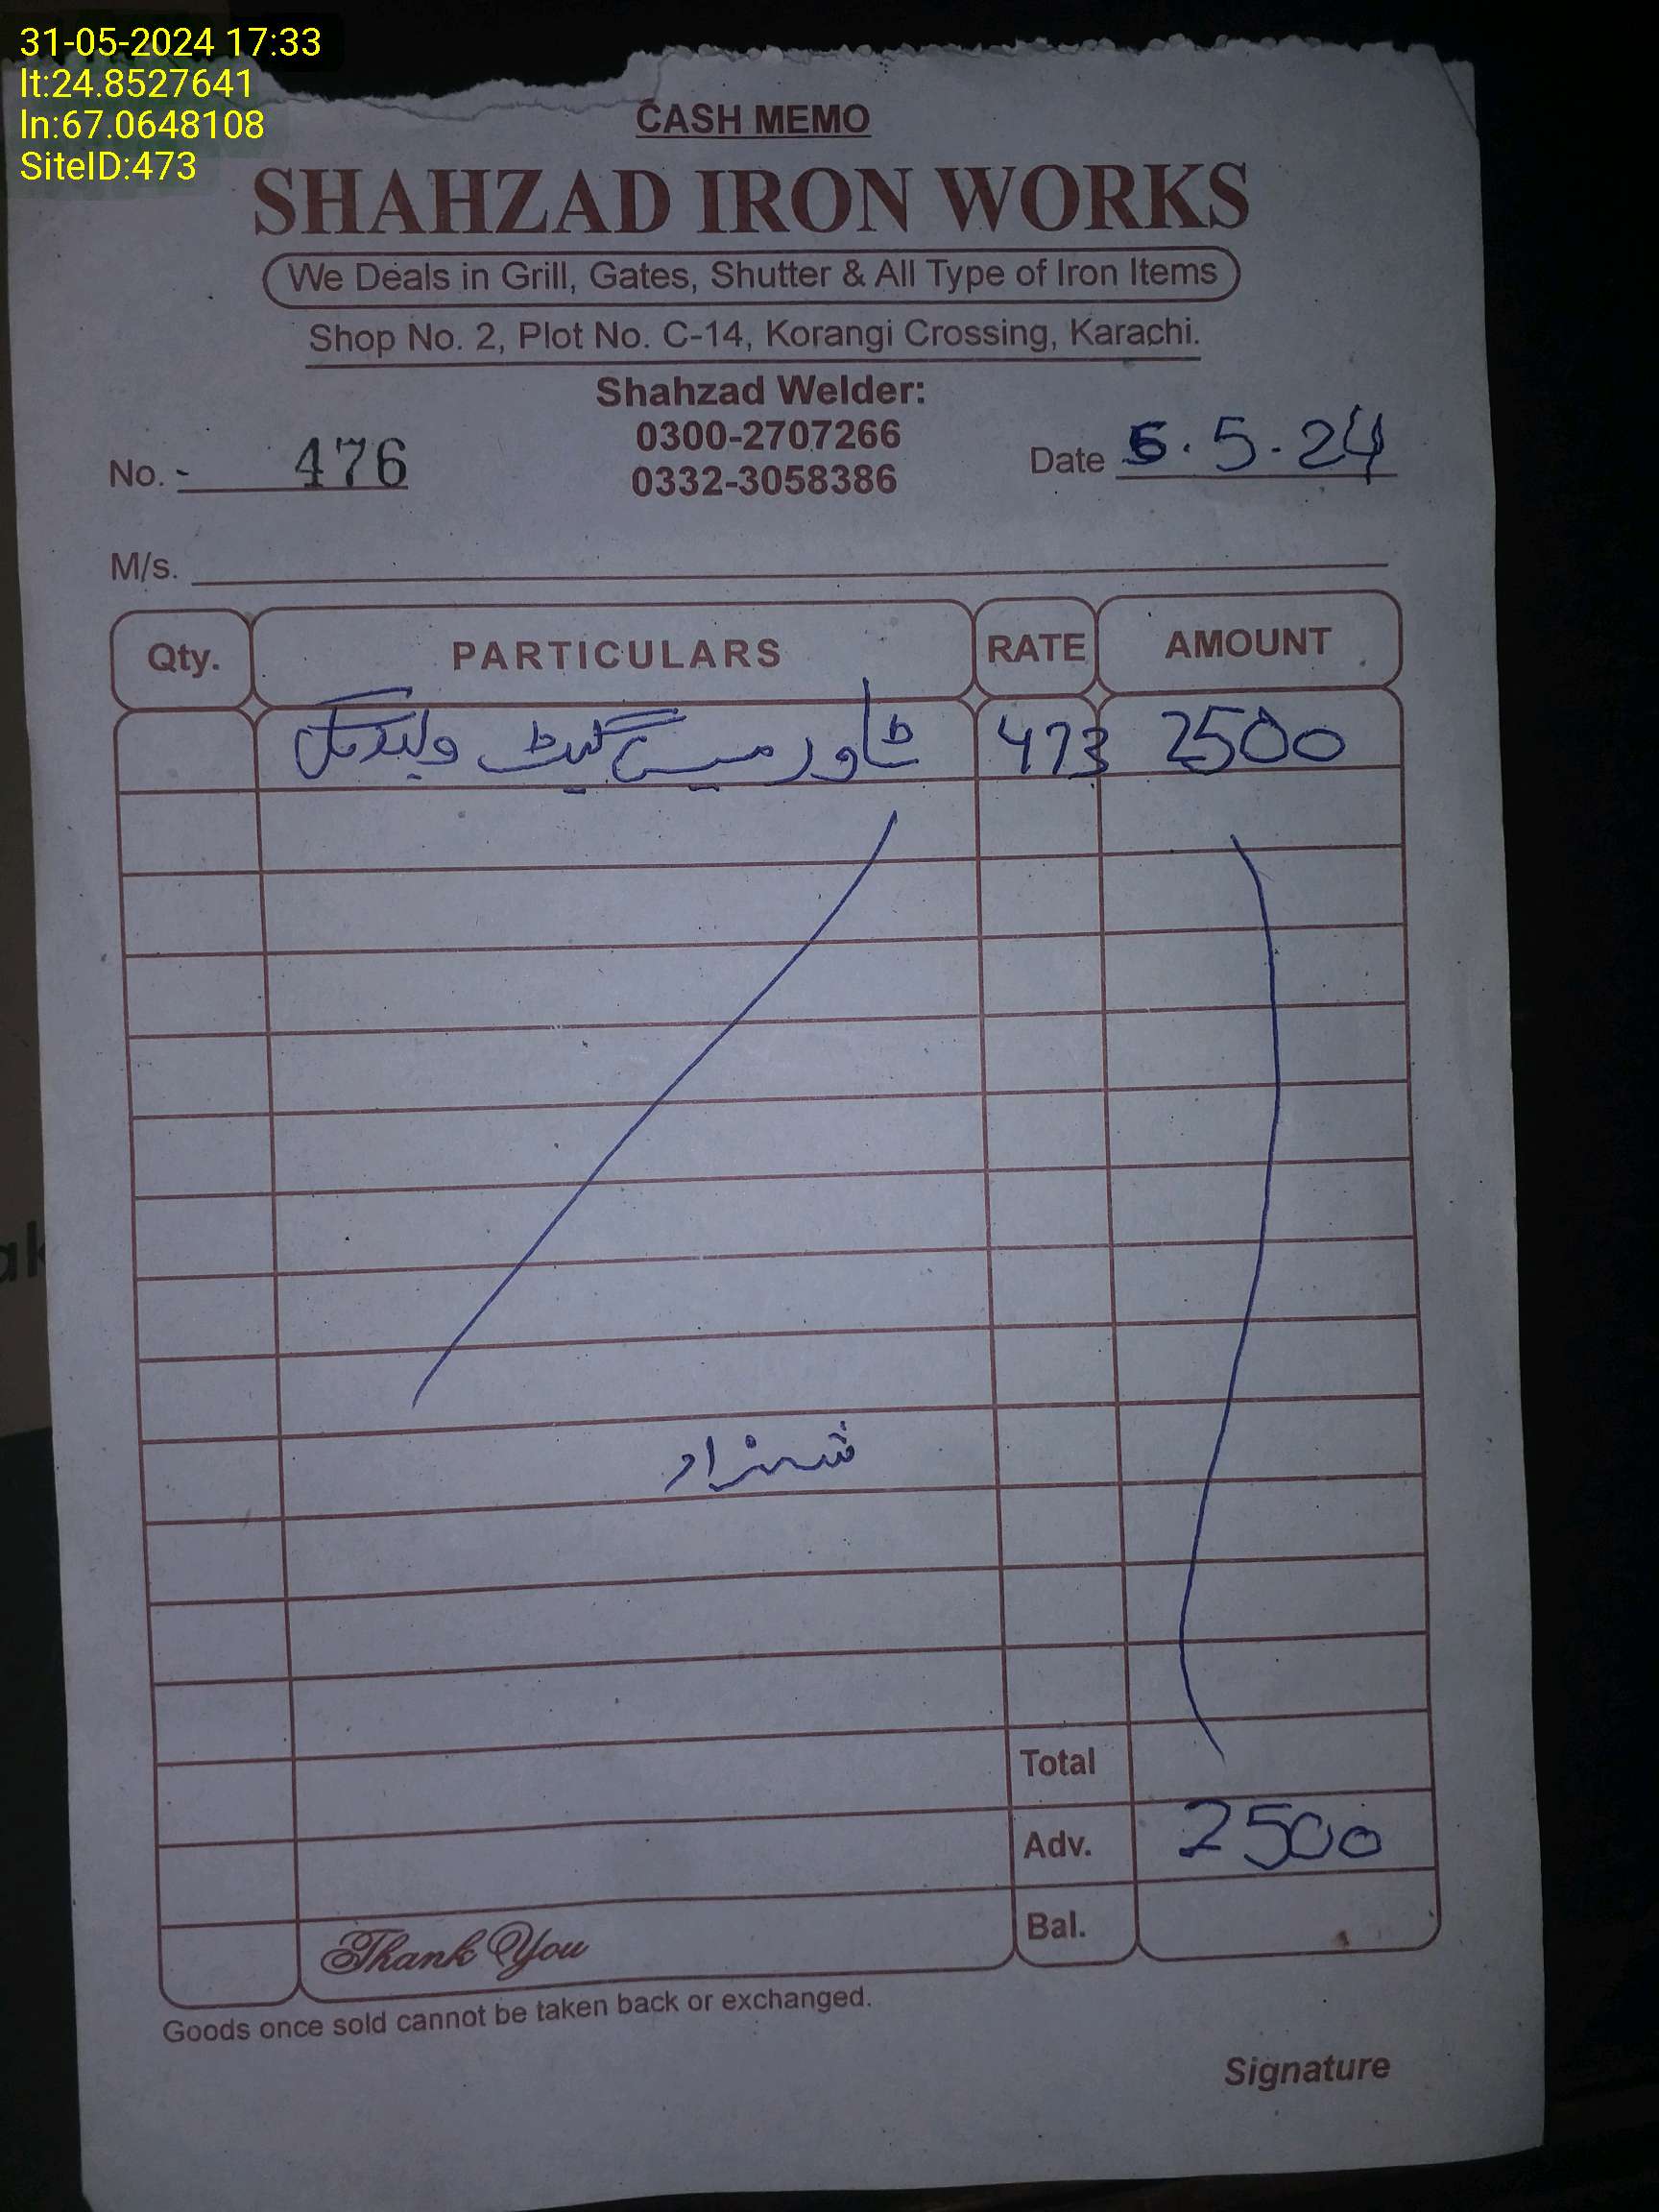 31-05-2024 17:33
lt:24.8527641
ln:67.0648108
SiteID:473
CASH MEMO
SHAHZAD IRON WORKS
We Deals in Grill, Gates, Shutter & All Type of Iron Items
Shop No. 2, Plot No. C-14, Korangi Crossing, Karachi.
Shahzad Welder:
0300-2707266
0332-3058386
No. 476
Date 5.24
M/s.
Qty. PARTICULARS RATE AMOUNT
ٹاور میں گیٹ 473 2500
شہزاد
Total
Adv. 2500
Bal.
Thank You
Goods once sold cannot be taken back or exchanged.
Signature